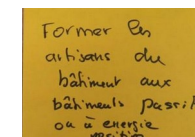 Former les
artisans du
bâtiment aux
bâtiments passif
ou à énergie
positive